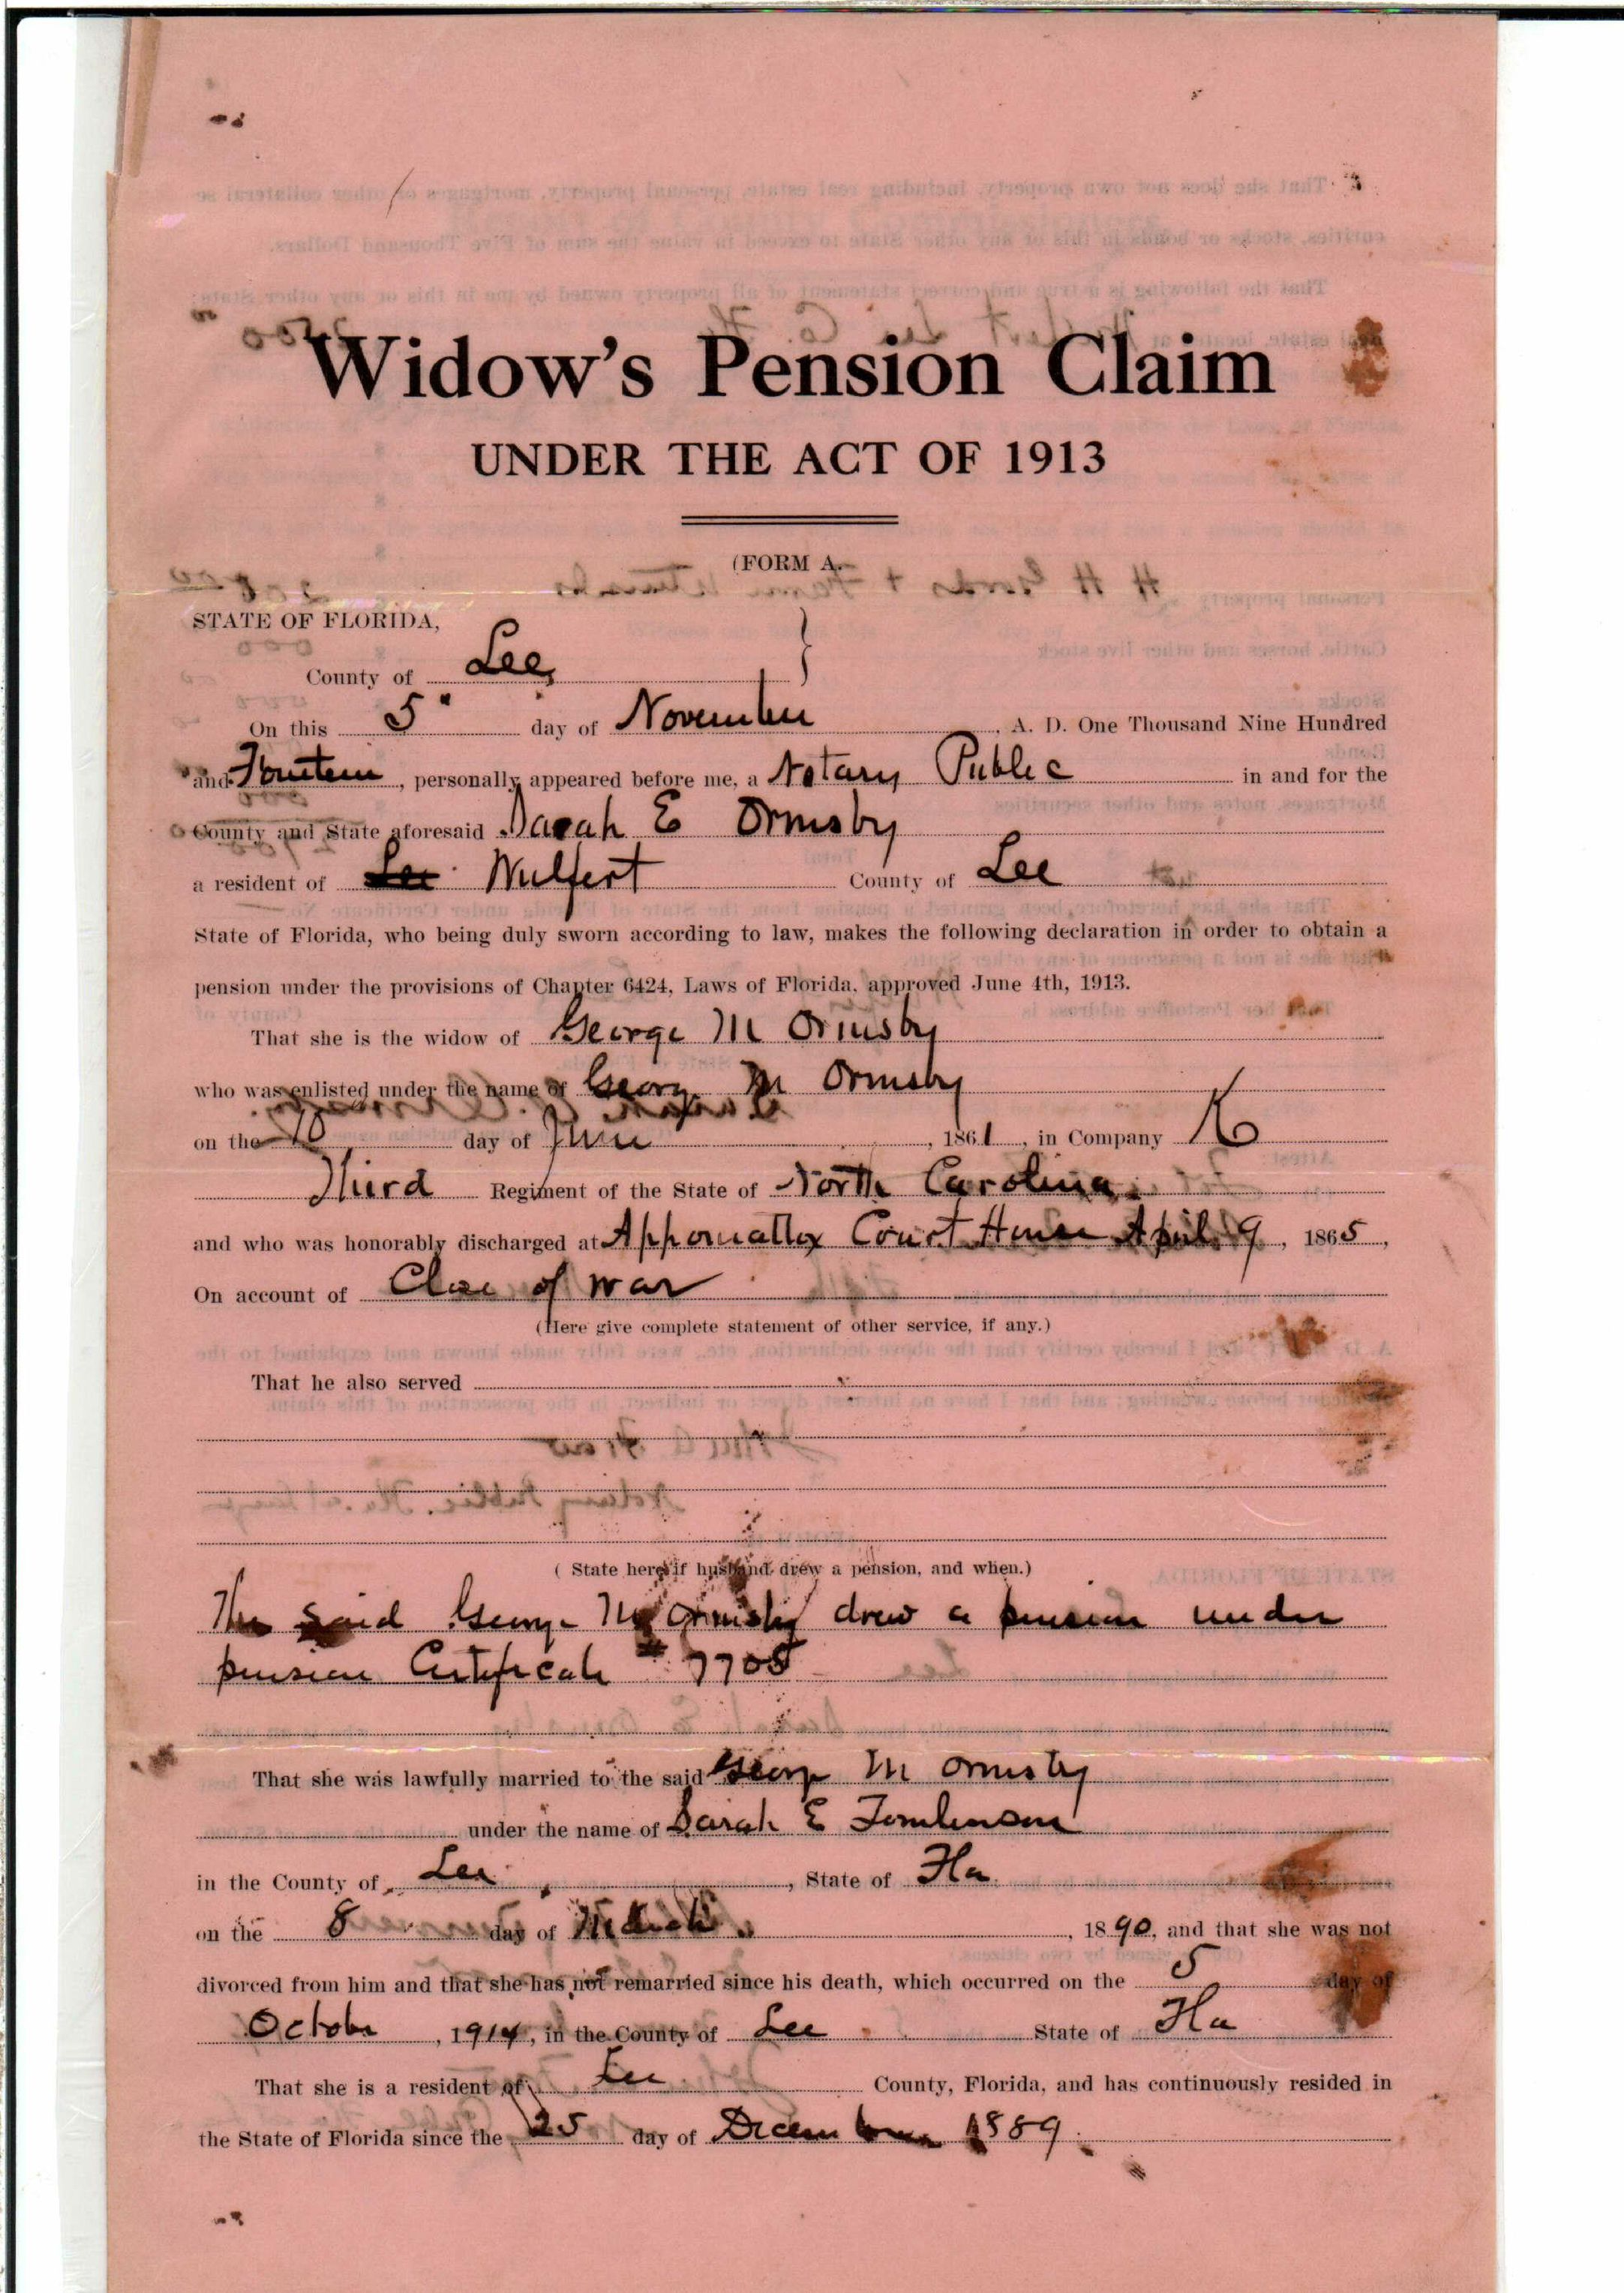 Widow's Pension Claim
UNDER THE ACT OF 1913
(FORM A.
STATE OF FLORIDA,
County of Lee
On this 5" day of November, A. D. One Thousand Nine Hundred
and Fourteen, personally appeared before me, a Notary Public in and for the
County and State aforesaid Sarah E Ormsby
a resident of Lee Wulfert County of Lee
State of Florida, who being duly sworn according to law, makes the following declaration in order to obtain a
pension under the provisions of Chapter 6424, Laws of Florida, approved June 4th, 1913.
That she is the widow of George M Ormsby
who was enlisted under the name of George M Ormsby
on the 10 day of June, 1861, in Company K
Third Regiment of the State of North Carolina.
and who was honorably discharged at Appomattox Court House April 9, 1865,
On account of Close of war
(Here give complete statement of other service, if any.)
That he also served
( State here if husband drew a pension, and when.)
The said George M Ormsby drew a pension under
pension Certificate # 7705
That she was lawfully married to the said George M Ormsby
under the name of Sarah E Tomlinson
in the County of Lee, State of Fla
on the 8 day of March, 1890, and that she was not
divorced from him and that she has not remarried since his death, which occurred on the 5 day of
October, 1914, in the County of Lee State of Fla
That she is a resident of Lee County, Florida, and has continuously resided in
the State of Florida since the 25 day of December 1889